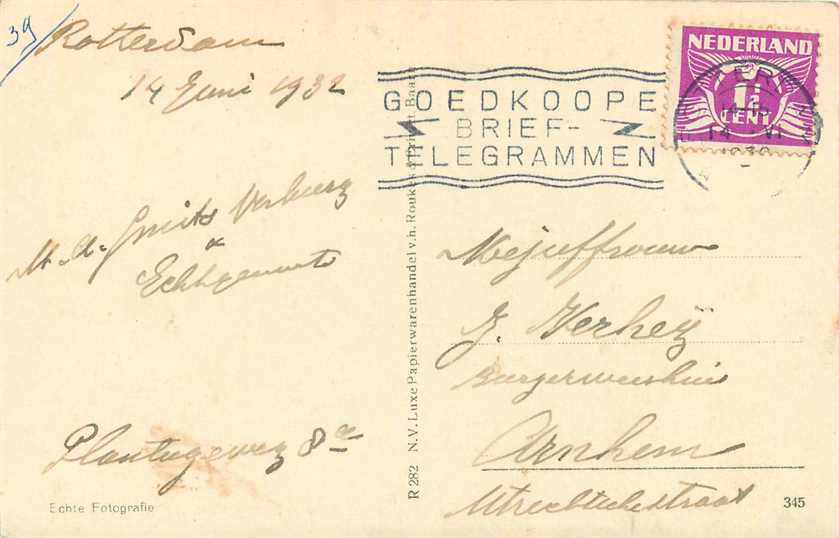 39/
Rotterdam
14 Juni 1932
M. A. Smits Verburg
&
Echtgenoote
Plantageweg 8a
Echte Fotografie
R 282 N.V. Luxe Papierwarenhandel v.h. Roukes & Erhart, Baarn
GOEDKOOPE
BRIEF-
TELEGRAMMEN
NEDERLAND
1½
CENT
14 VI
1932
Mejuffrouw
J. Verhey
Burgerweeshuis
Arnhem
Utrechtschestraat
345